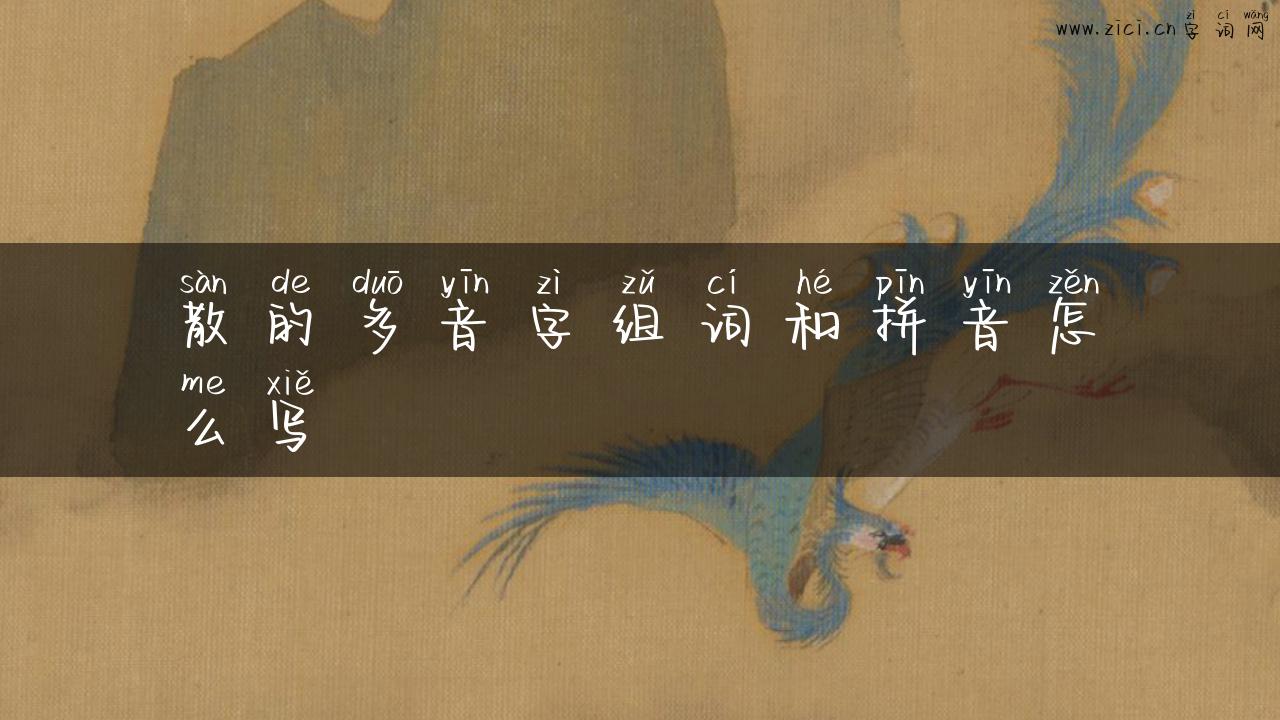 zì cí wǎng
www.zici.cn 字词网
sàn de duō yīn zì zǔ cí hé pīn yīn zěn
散的多音字组词和拼音怎
me xiě
么写